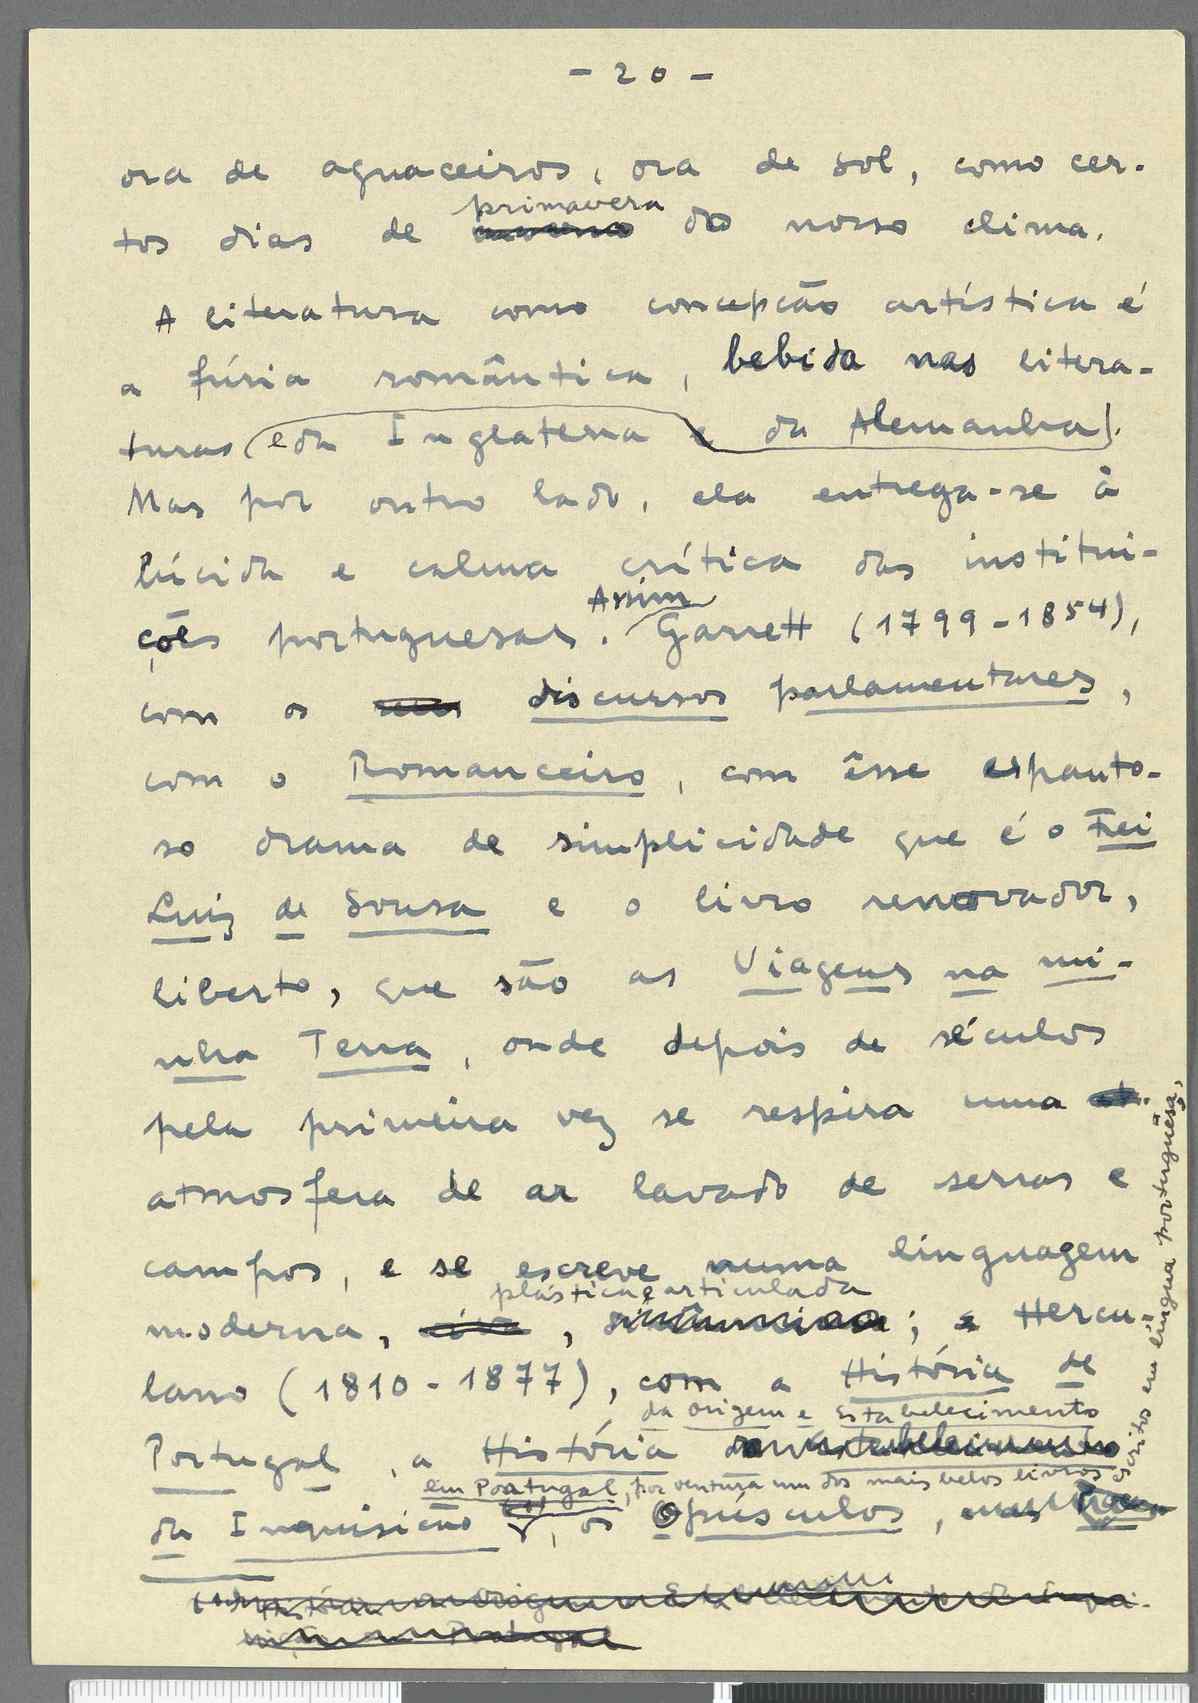 - 20 -
ora de aguaceiros, ora de sol, como cer-
primavera
tos dias de do nosso clima.
A literatura como concepção artística é
a fúria romântica, bebida nas litera-
turas (e da Inglaterra e da Alemanha).
Mas por outro lado, ela entrega-se à
lúcida e calma crítica das institui-
Assim
ções portuguesas. Garrett (1799-1854),
com os discursos parlamentares,
com o Romanceiro, com êsse espanto-
so drama de simplicidade que é o Frei
Luiz de Sousa e o livro renovador,
liberto, que são as Viagens na mi-
nha Terra, onde depois de séculos
pela primeira vez se respira uma
atmosfera de ar lavado de serras e
campos, e se escreve numa linguagem
plástica e articulada
moderna, , ; e Hercu-
lano (1810-1877), com a História de
da origem e Estabelecimento
Portugal, a História
em Portugal, porventura um dos mais belos livros escritos em língua portuguêsa,
da Inquisição, os Opúsculos, mas